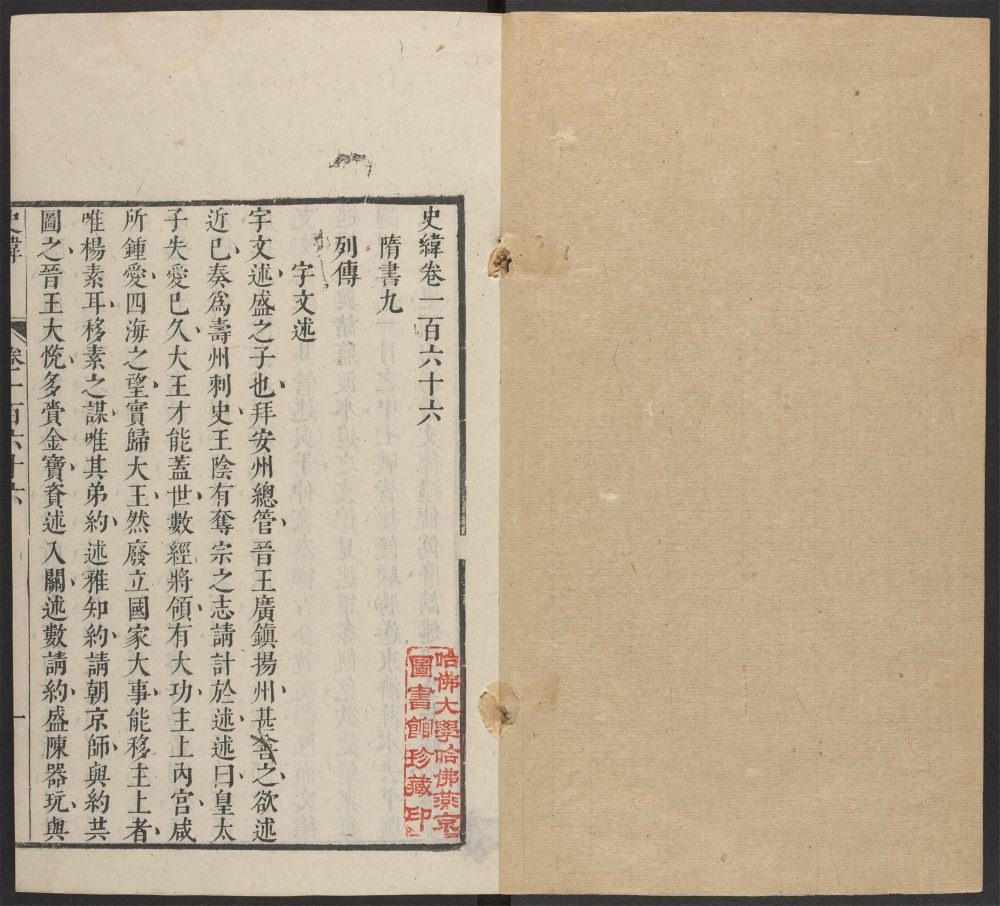 史緯卷一百六十六
隋書九
列傳
宇文述
宇文述盛之子也拜安州總管晉王廣鎮揚州甚善之欲述
近已奏爲壽州刺史王陰有奪宗之志請計於述述曰皇太
子失愛已久大王才能蓋世數經將領有大功主上內宮咸
所鍾愛四海之望實歸大王然廢立國家大事能移主上者
唯楊素耳移素之謀唯其弟約述雅知約請朝京師與約共
圖之晉王大悅多賚金寶資述入關述數請約盛陳器玩與
史緯
卷一百六十六
一
哈佛大學哈佛燕京
圖書館珍藏印